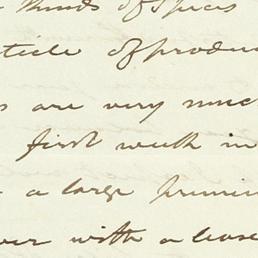 kinds of Spices
article of produc
s are very muc
first week in
a large premi
over with a lease